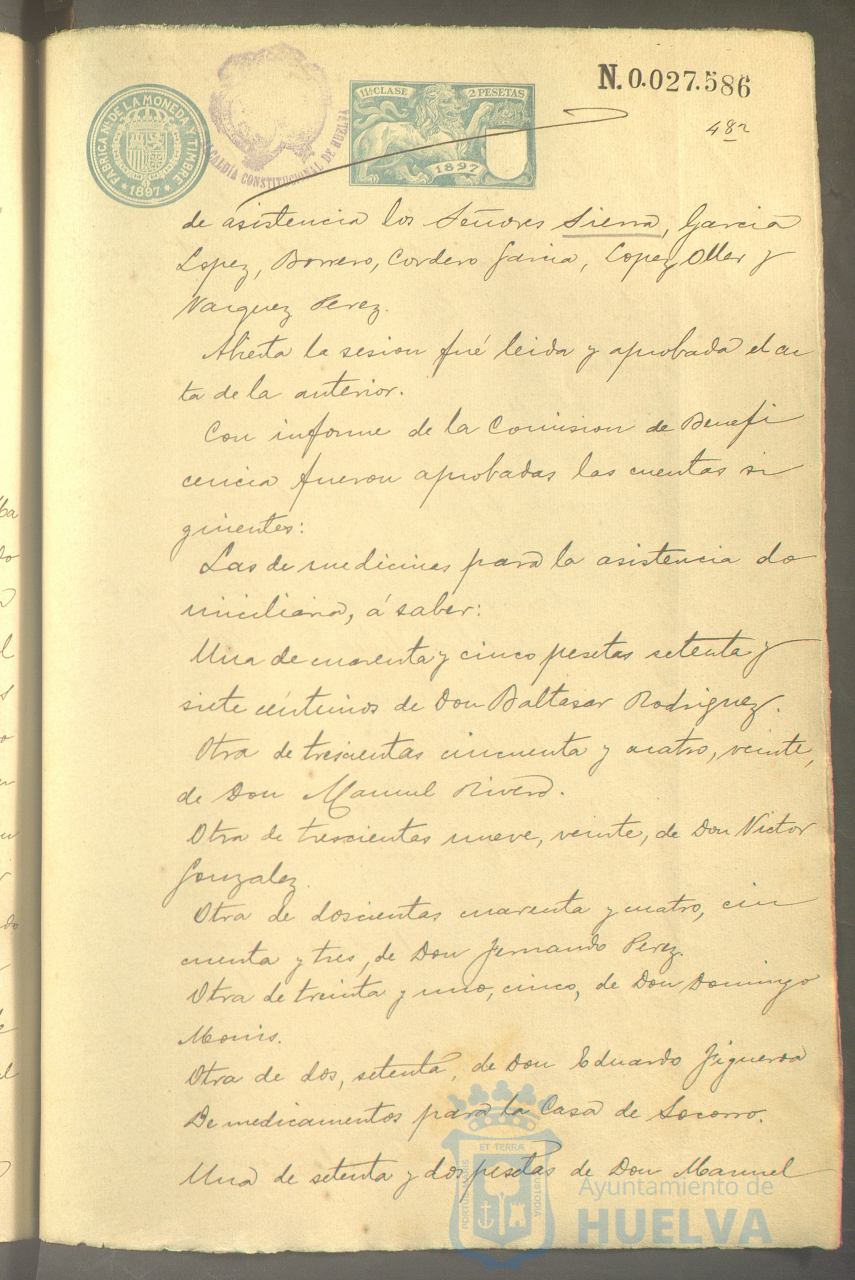 FABRICA N. DE LA MONEDA Y TIMBRE
* 1897 *
ALCALDÍA CONSTITUCIONAL DE HUELVA
11ª CLASE 2 PESETAS
1897
N. 0.027.586
de asistencia los Señores Sierra, Garcia
Lopez, Borrero, Cordero Garcia, Lopez Oller y
Vazquez Perez.
Abierta la sesion fué leida y aprobada el ac
ta de la anterior.
Con informe de la Comision de Benefi
cencia fueron aprobadas las cuentas si
guientes:
Las de medicinas para la asistencia do
miciliaria, á saber:
Una de cuarenta y cinco pesetas setenta y
siete céntimos de Don Baltasar Rodriguez.
Otra de trescientas cincuenta y cuatro, veinte,
de Don Manuel Rivero.
Otra de trescientas nueve, veinte, de Don Victor
Gonzalez.
Otra de doscientas cuarenta y cuatro, cin
cuenta y tres, de Don Fernando Perez.
Otra de treinta y uno, cinco, de Don Domingo
Monis.
Otra de dos, setenta, de Don Eduardo Figueroa
De medicamentos para la Casa de Socorro.
Una de setenta y dos pesetas de Don Manuel
PORTUS MARIS ET TERRÆ CUSTODIA
Ayuntamiento de
HUELVA